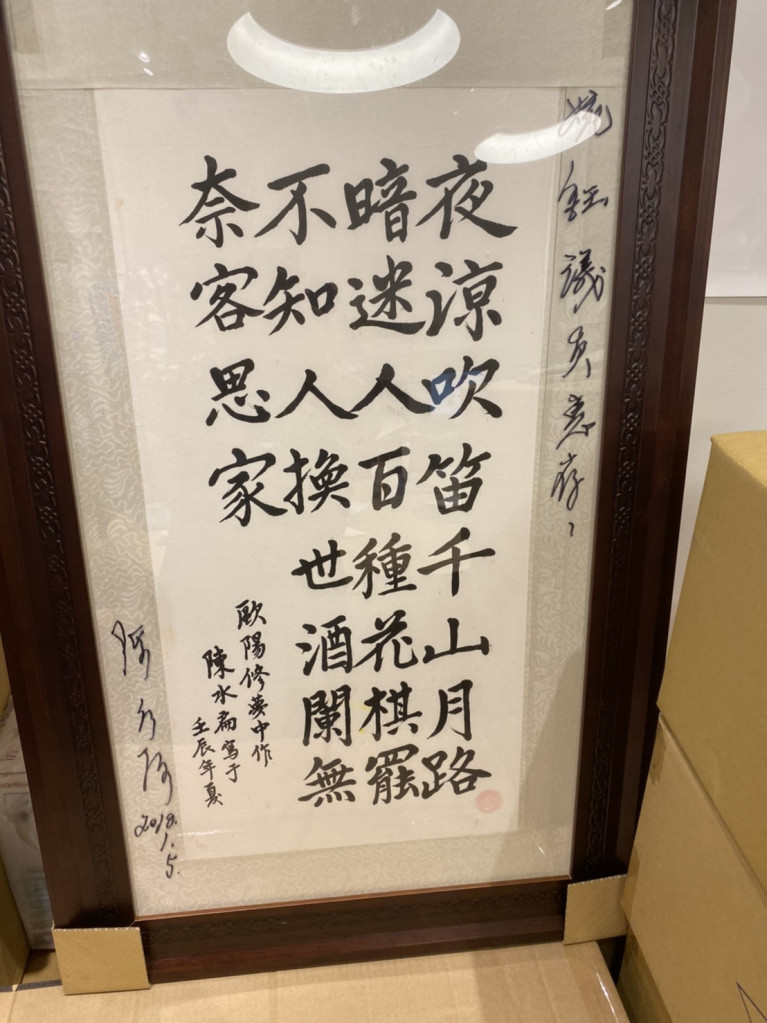 婉鈺議員惠存：
夜涼吹笛千山月路
暗迷人人百種花棋罷
不知人換世酒闌無
奈客思家
歐陽修夢中作
陳水扁寫于
壬辰年夏
陳水扁
2018.1.5.